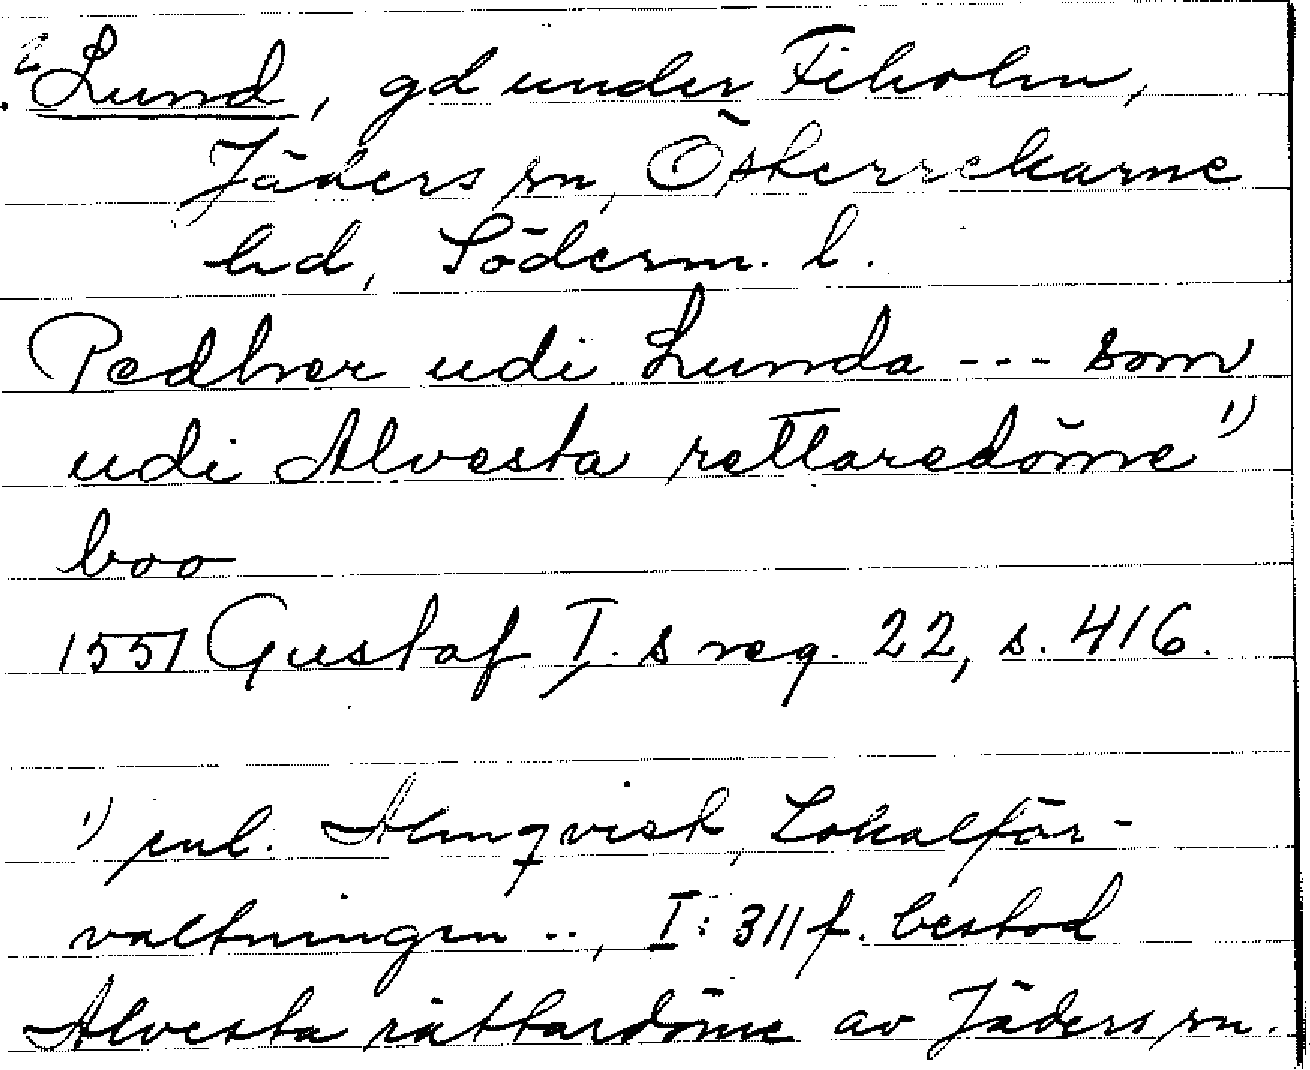 Lund, gd under Fiholm,
Jäders sn, Österrekarne
hd, Söderm. l.
Pedher udi Lunda --- som
udi Alvesta rettaredöme 1)
boo
1551 Gustaf I.s reg. 22, s. 416.
1) enl. Almqvist, Lokalför-
valtningen .., I: 311 f. bestod
Alvesta rättardöme av Jäders sn.